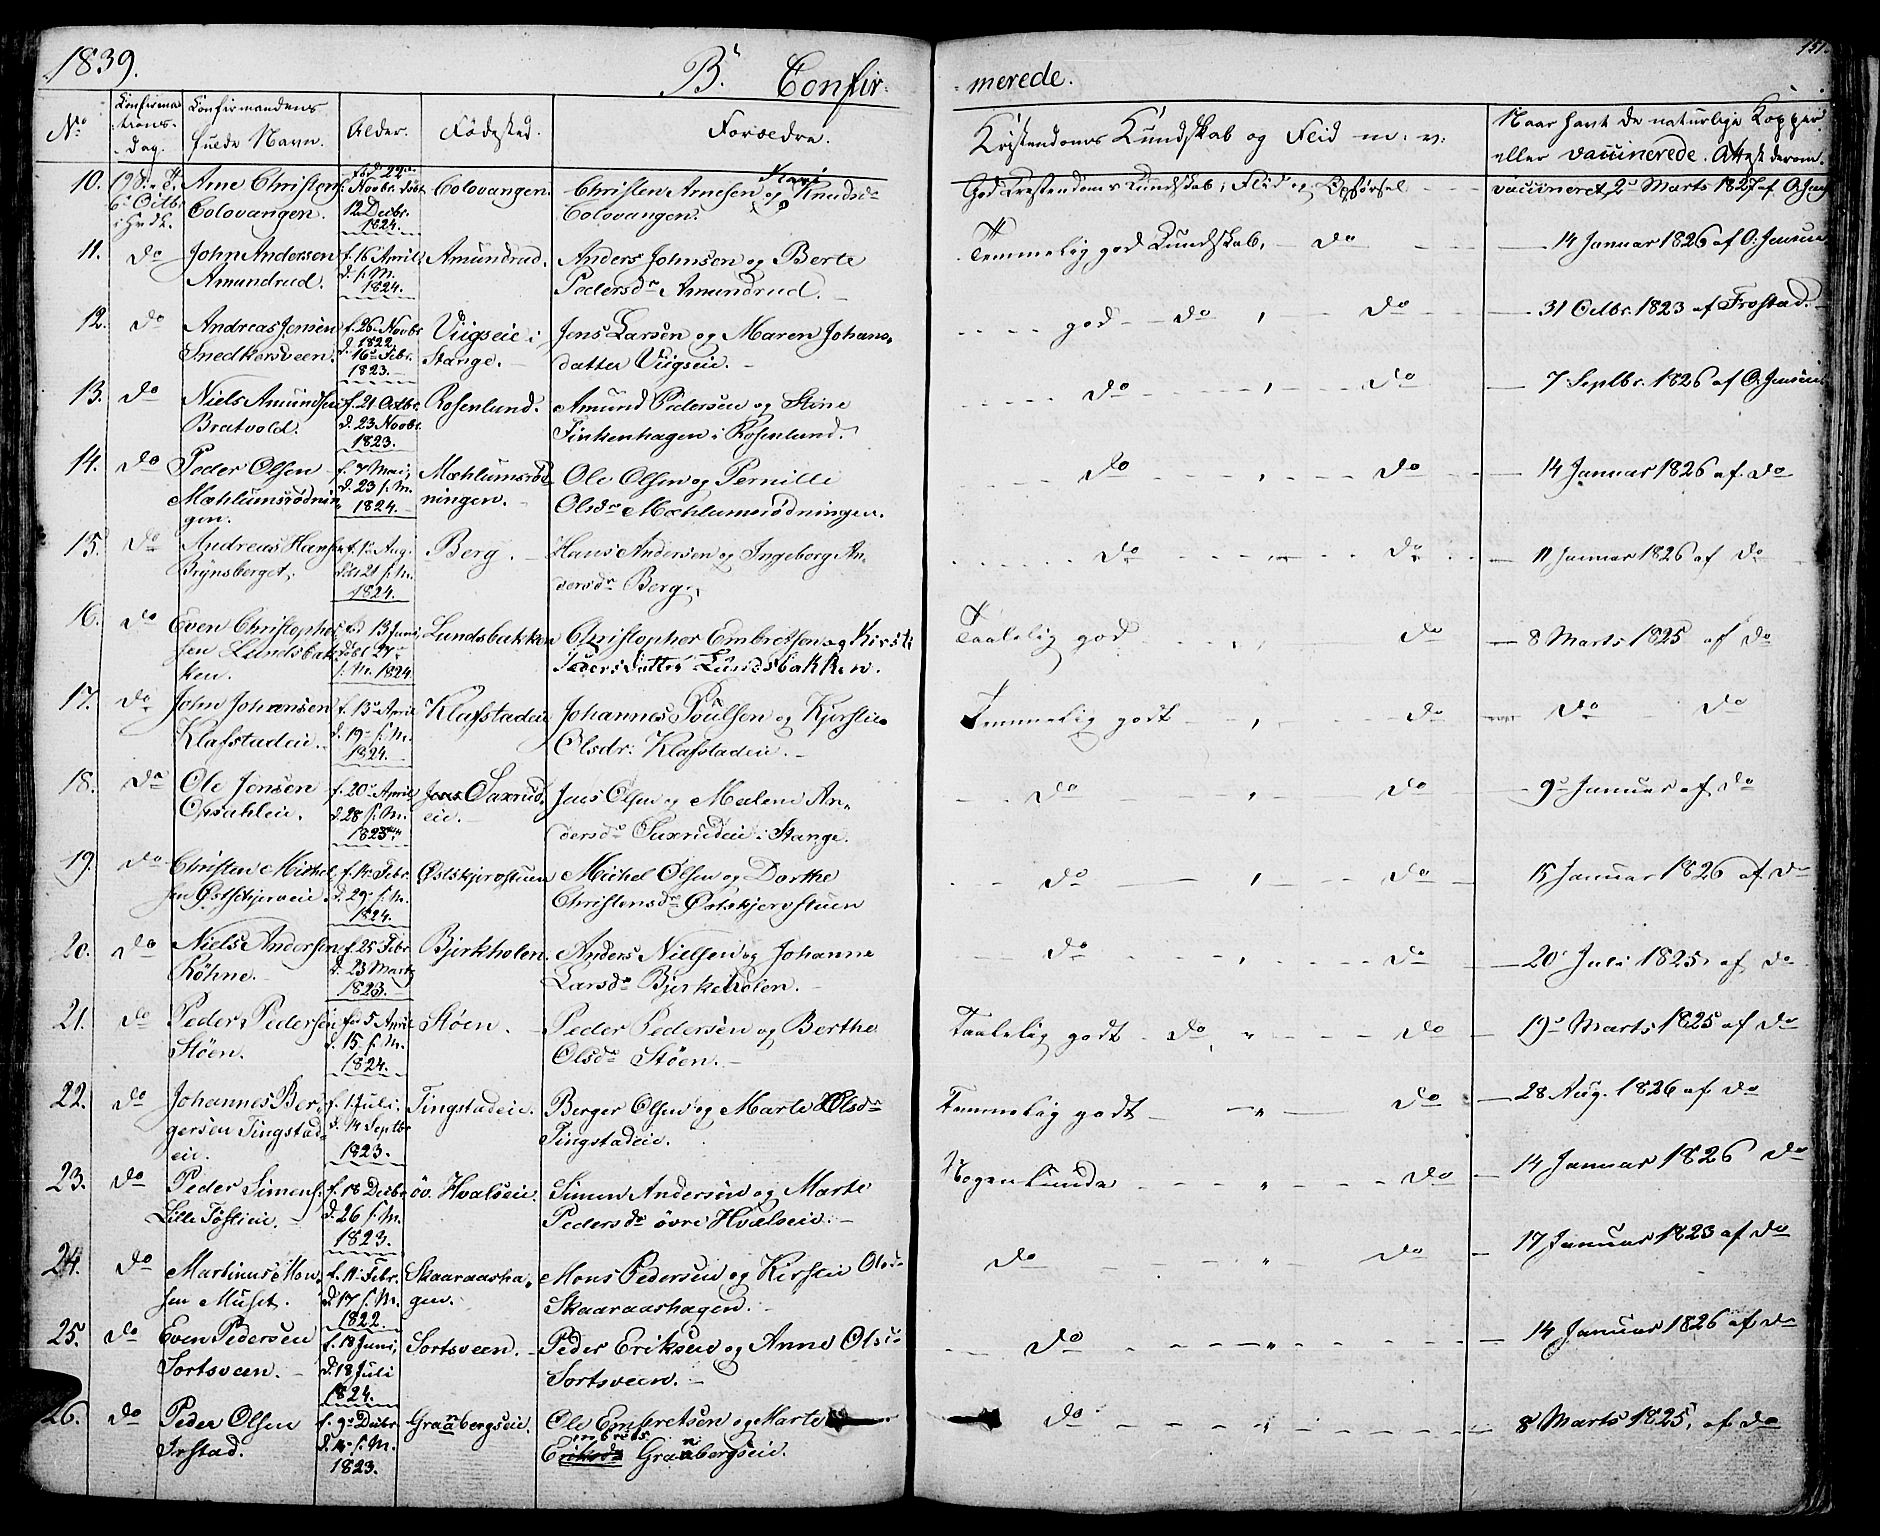 1839.
B. Confir-
merede.
151.
No
Confirma
tions-
Dag.
Confirmandens
fulde Navn.
Alder.
Fødested.
Forældre.
Kristendoms Kundskab og Flid m: v:
Naar havt de naturlige Kopper
eller vaccinerede. Attest derom.
10.
6 Octbr.
Arne Christens
Colovangen.
12 Decbr.
1824.
Colovangen.
Christen Arnesen og Kari Knudsdr
Colovangen.
God Kristendoms Kundskab, Flid og Opførsel
vaccineret 2 Marts 1827 af O. Jens
11.
do
John Andersen
Amundrud.
f. 16 April
d. s. M.
1824.
Amundrud.
Anders Johnsen og Berte
Pedersdr Amundrud.
Temmelig god Kundskab, - do
14 Januar 1826 af O. Jensen
12.
do
Andreas Jensen
Snedkersveen.
f. 26 Novbr
1822
d. 16 Febr.
1823.
Viigseie i
Stange.
Jens Larsen og Maren Johans-
datter Viigseie.
god - do , do
31 Octbr. 1823 af Frostad.
13.
do
Niels Amundsen
Bratvold.
f. 21 Octbr.
d. 23 Novbr.
1823.
Rosenlund.
Amund Pedersen og Stine
Finkenhagen i Rosenlund.
do , do
7 Septbr. 1826 af O. Jensen
14.
do
Peder Olsen
Mæhlumsrødnin
gen.
f. 7 Mai,
d. 23 s. M.
1824.
Mæhlumsrød
ningen.
Ole Olsen og Pernille
Olsdr Mæhlumsrødningen.
do , do
14 Januar 1826 af do
15.
do
Andreas Hansen
Brynsberget,
f. 1 Aug.
21 s. M.
1824.
Berg.
Hans Andersen og Ingeborg An-
dersdr Berg.
do do
11 Januar 1826 af do
16.
do
Even Christopher
sen Lundsbak
ken.
13 Juni,
s. M. 1824
Lundsbakken
Christopher Embretsen og Kirsti
Pedersdatter Lundsbakken.
Taalelig god , do
8 Marts 1825 af do
17.
do
John Johansen
Klafstadeie.
f. 13 April
d. 19 s. M.
1824.
Klafstadeie
Johannes Poulsen og Kjerstie
Olsdr: Klafstadeie.
Temmelig godt , do
do do
18.
do
Ole Jensen
Opsahleie.
f. 20 April
d. 28 s. M.
1823
Saxrud
eie.
Jens Olsen og Malene An-
dersdr Saxrudeie i Stange.
do , do
9 Januar af do
19.
do
Christen Michel
sen Østskjerveie
f. 14 Febr.
d. 29 s. M.
1824.
Østskjerstuen
Michel Olsen og Dorthe
Christensdr Østskjerstuen
do , do
15 Januar 1826 af do
20.
do
Niels Andersen
Röhne.
f. 25 Febr
d. 23 Marts
1823.
Bjerkholen.
Anders Nielsen og Johanne
Larsdr Bjerkeholen.
do , do
20 Juli 1825 af do
21.
do
Peder Pedersen
Støen.
5 April
d. 15 s. M.
1824.
Støen.
Peder Pedersen og Berthe
Olsdr Støen.
Taalelig godt do " do
19 Marts 1825 af do
22.
do
Johannes Ber
gersen Tingstad
eie.
f. 1 Juli.
d. 14 Septbr
1823.
Tingstadeie.
Berger Olsen og Marte Olsdr
Tingstadeie.
Temmelig godt " do
28 Aug. 1826 af do
23.
do
Peder Simens.
Lille Tøstieie.
f. 18 Decbr
d. 26 s. M.
1823.
öv. Hvalseie.
Simen Andersen og Marte
Pedersdr övre Hvalseie.
Nogen Kunds " do
14 Januar 1826 do
24.
do
Martinus Mon
sen Muset.
f. 11 Febr.
d. 17 s. M.
1822.
Skaaraasha-
gen.
Mons Pedersen og Kirstie Olsdr
Skaaraashagen.
do " do
17 Januar 1823 af do
25.
do
Even Pedersen
Sortsveen.
f. 18 Juni,
d. 18 Juli
1824.
Sortsveen.
Peder Eriksen og Anne Olsdr
Sortsveen.
do "
14 Januar 1826 af do
26.
do
Peder Olsen
Irstad.
f. 9 Decbr
d. 14 s. M.
1823.
Granbergseie.
Ole Embretsen og Marte
Granbergseie.
do "
8 Marts 1825, af do